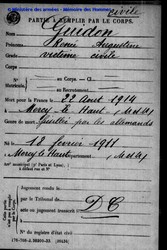 © Ministère des armées - Mémoire des Hommes
civile
PARTIE À REMPLIR PAR LE CORPS.
Nom Guidon
Prénoms Renée Augustine
Grade victime civile
Corps
N°
Matricule.
au Corps. — Cl.
au Recrutement
Mort pour la France le 22 Août 1914
à Mercy le Haut, M et M
Genre de mort fusillée par les allemands
Né le 12 février 1911
à Mercy le Haut Département M et M
Arr municipal (p' Paris et Lyon),
à défaut rue et N°.
Jugement rendu le
par le Tribunal de
acte ou jugement transcrit le
D C
N° du registre d'état civil